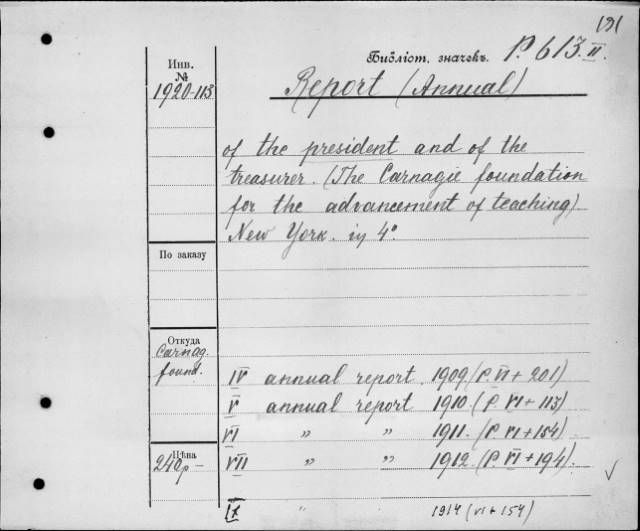 191
Библіот. значекъ. P. 613 II.
Инв.
№
1920-113
Report (Annual)
of the president and of the
treasurer. (The Carnagie foundation
for the advancement of teaching)
New York. in 4°
По заказу
Откуда
Carnag.
found.
IV annual report 1909 (P. VI + 201)
V annual report 1910 (P. VI + 113)
VI " " 1911. (P. VI + 154)
Цѣна
240р —
VII " " 1912. (P. VI + 194).
IX " 1914 (VI + 154)